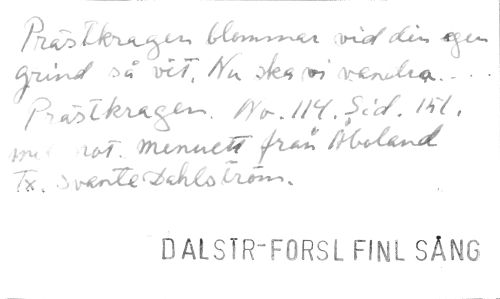 Prästkragen blommar vid din egen
grind så vit. Nu ska vi vandra....
Prästkragen. No. 114. Sid. 151.
not. menuett från Åboland
Tx. Svante Dahlström.
DALSTR-FORSL FINL SÅNG